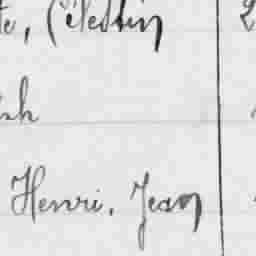 te, Célestin 2
ph
Henri, Jean